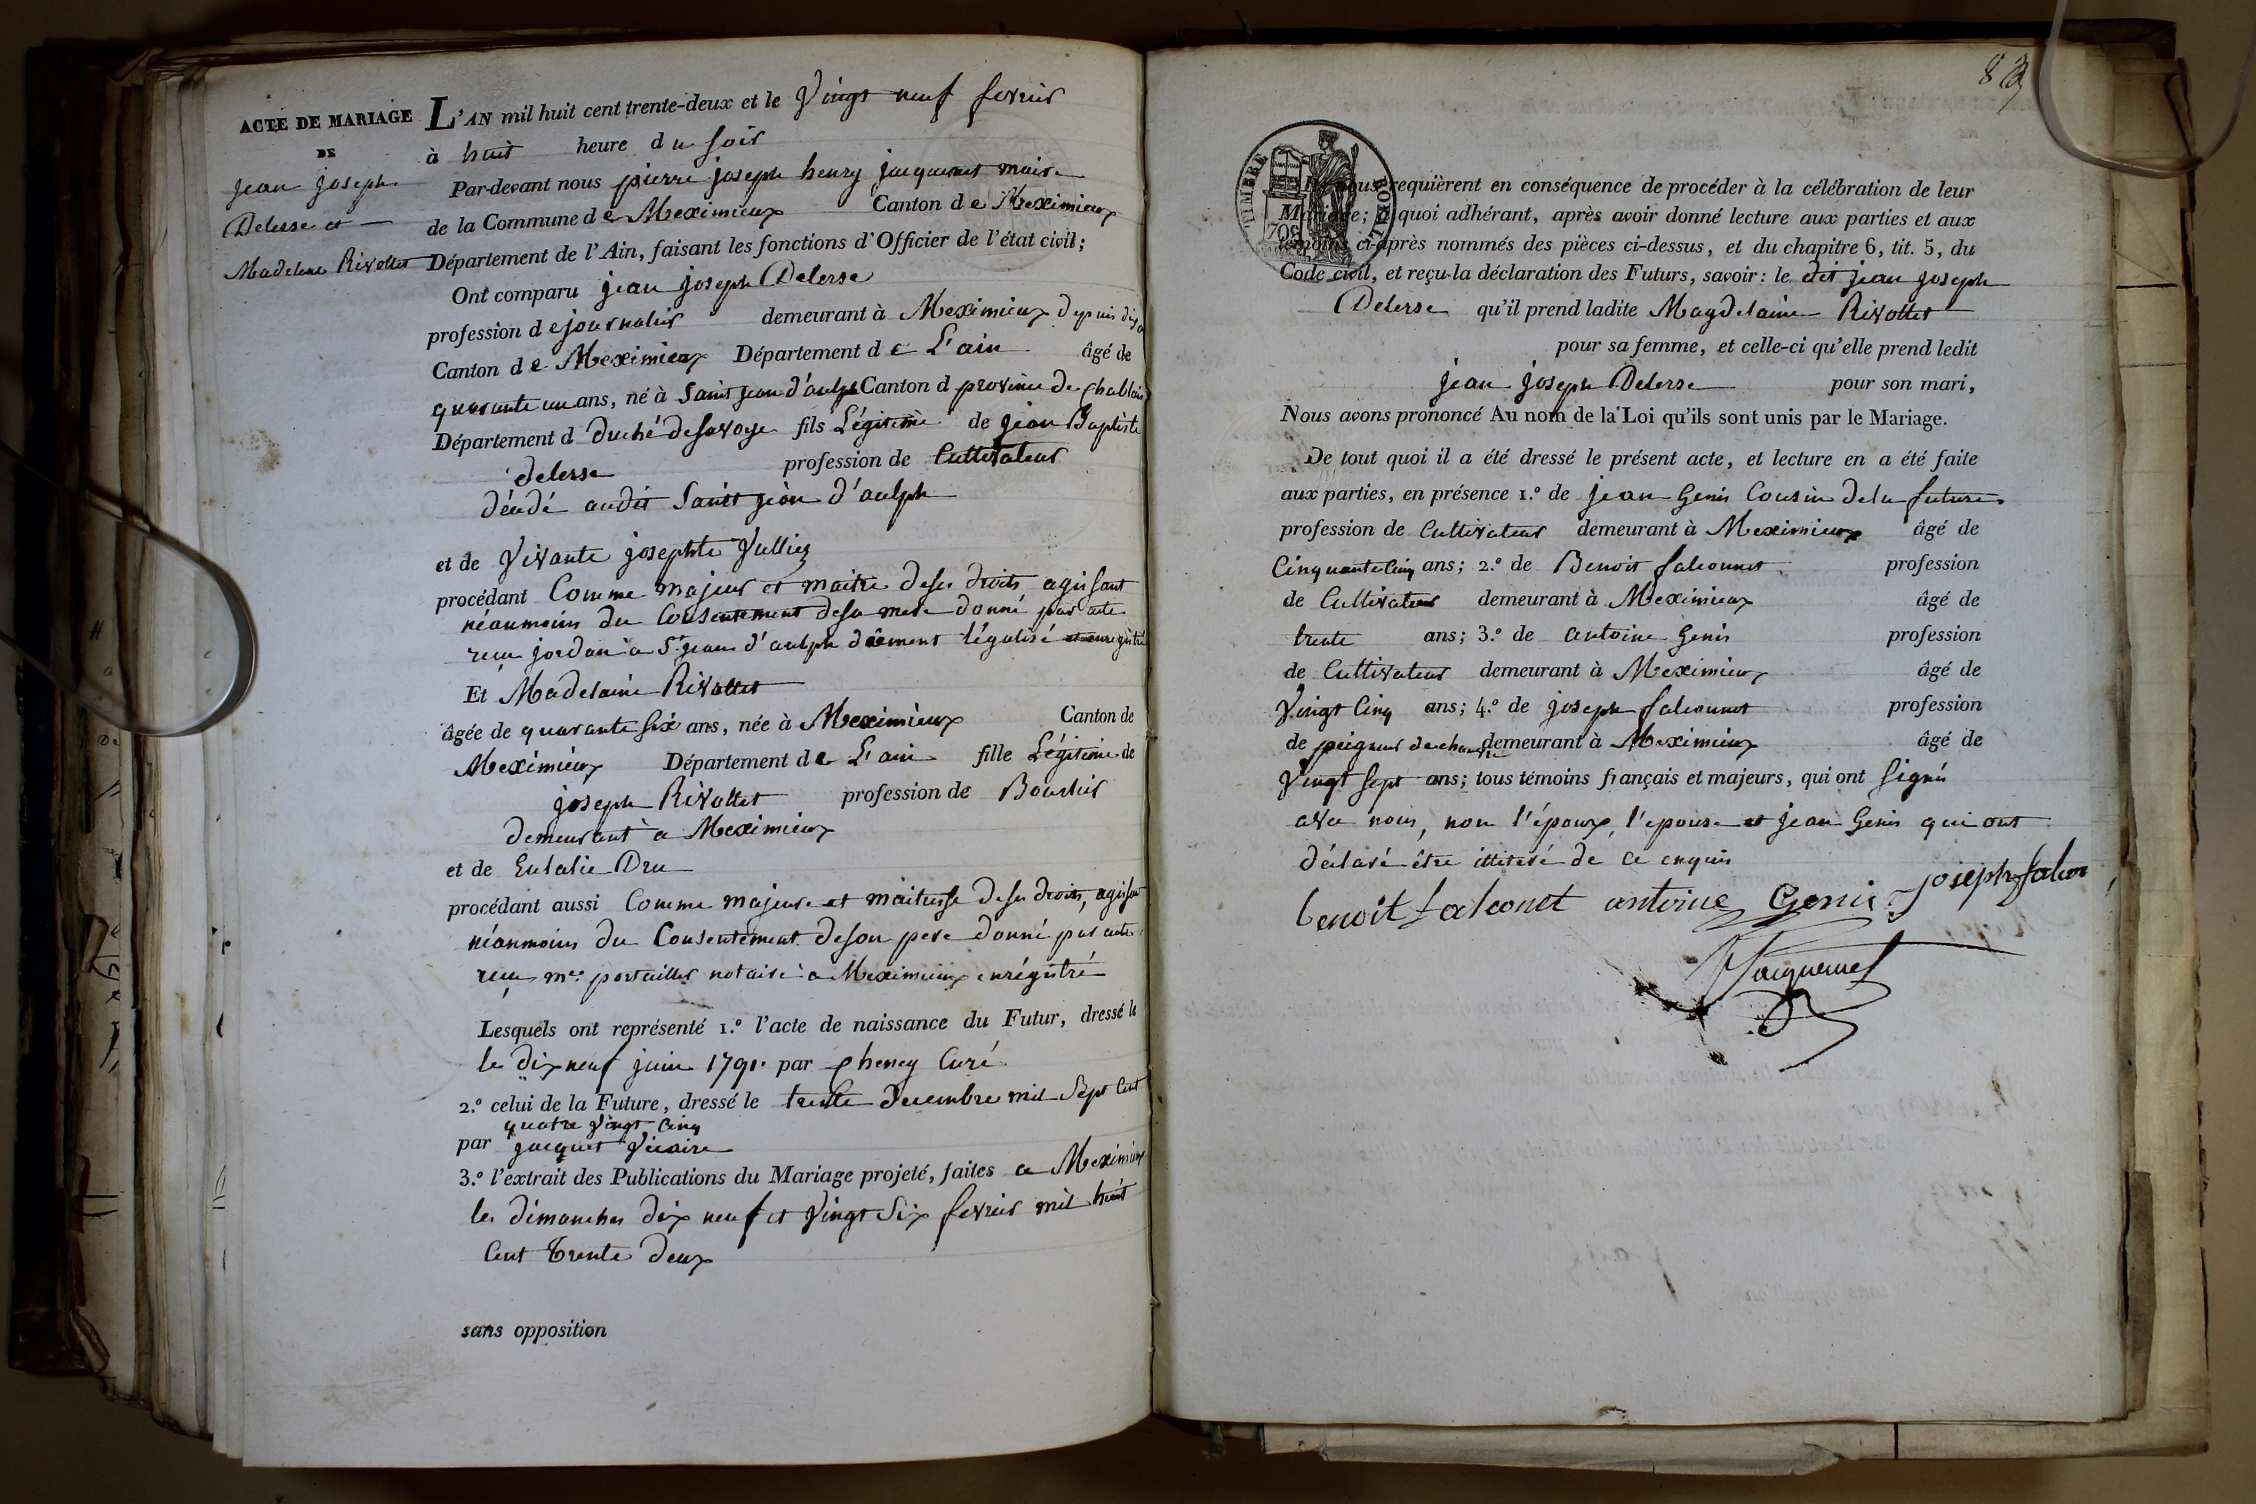 ACTE DE MARIAGE
DE
jean joseph
Delerse et
Madelene Rivollet
L'AN mil huit cent trente-deux et le Vingt neuf fevrier
à huit heure du soir
Par-devant nous pierre joseph henry jacquemet maire
de la Commune de Meximieux Canton de Meximieux
Département de l'Ain, faisant les fonctions d'Officier de l'état civil;
Ont comparu jean joseph Delerse
profession de journalier demeurant à Meximieux depuis
Canton de Meximieux Département de L'ain âgé de
quarante un ans, né à Saint jean d'aulph Canton d province de Chablais
Département d duché de Savoye fils Légitime de jean Baptiste
delerse profession de Cultivateur
décédé audit Saint jean d'aulph
et de Vivante josephte Vulliez
procédant Comme majeur et maitre de ses droits agissant
néanmoins du Consentement de sa mere donné par acte
reçu jordan a St jean d'aulph dûment légalisé et enregistré
Et Madelaine Rivollet
âgée de quarante six ans, née à Meximieux Canton de
Meximieux Département de L'ain fille Légitime de
joseph Rivollet profession de Bourlier
demeurant a Meximieux
et de Eulalie Dru
procédant aussi Comme majeure et maitresse de ses droits, agissant
néanmoins du Consentement de son pere donné par acte
reçu me portallier notaire a Meximieux enrégistré
Lesquels ont représenté 1.º l'acte de naissance du Futur, dressé le
le dix neuf juin 1791 par Curé
2.º celui de la Future, dressé le trente Decembre mil Sept Cent
quatre Vingt Cinq
par jacquet Vicaire
3.º l'extrait des Publications du Mariage projeté, faites a Meximieux
les dimanches dix neuf et Vingt Six fevrier mil huit
Cent Trente deux
sans opposition
TIMBRE ROYAL
70c
Et nous requièrent en conséquence de procéder à la célébration de leur
Mariage; à quoi adhérant, après avoir donné lecture aux parties et aux
témoins ci-après nommés des pièces ci-dessus, et du chapitre 6, tit. 5, du
Code civil, et reçu la déclaration des Futurs, savoir: le dit jean joseph
Delerse qu'il prend ladite Magdelaine Rivollet
pour sa femme, et celle-ci qu'elle prend ledit
jean joseph Delerse pour son mari,
Nous avons prononcé Au nom de la Loi qu'ils sont unis par le Mariage.
De tout quoi il a été dressé le présent acte, et lecture en a été faite
aux parties, en présence 1.º de jean Genis Cousin de la future
profession de Cultivateur demeurant à Meximieux âgé de
Cinquante Cinq ans; 2.º de Benoit falconnet profession
de Cultivateur demeurant à Meximieux âgé de
trente ans; 3.º de antoine Genis profession
de Cultivateur demeurant à Meximieux âgé de
Vingt Cinq ans; 4.º de joseph falconnet profession
de peigneur de chanvre demeurant à Meximieux âgé de
Vingt Sept ans; tous témoins français et majeurs, qui ont Signé
avec nous, non l'époux, l'epouse et jean Genis qui ont
déclaré être illiteré de ce enquis
benoit falconet antoine Genis joseph falcon
Jacquemet